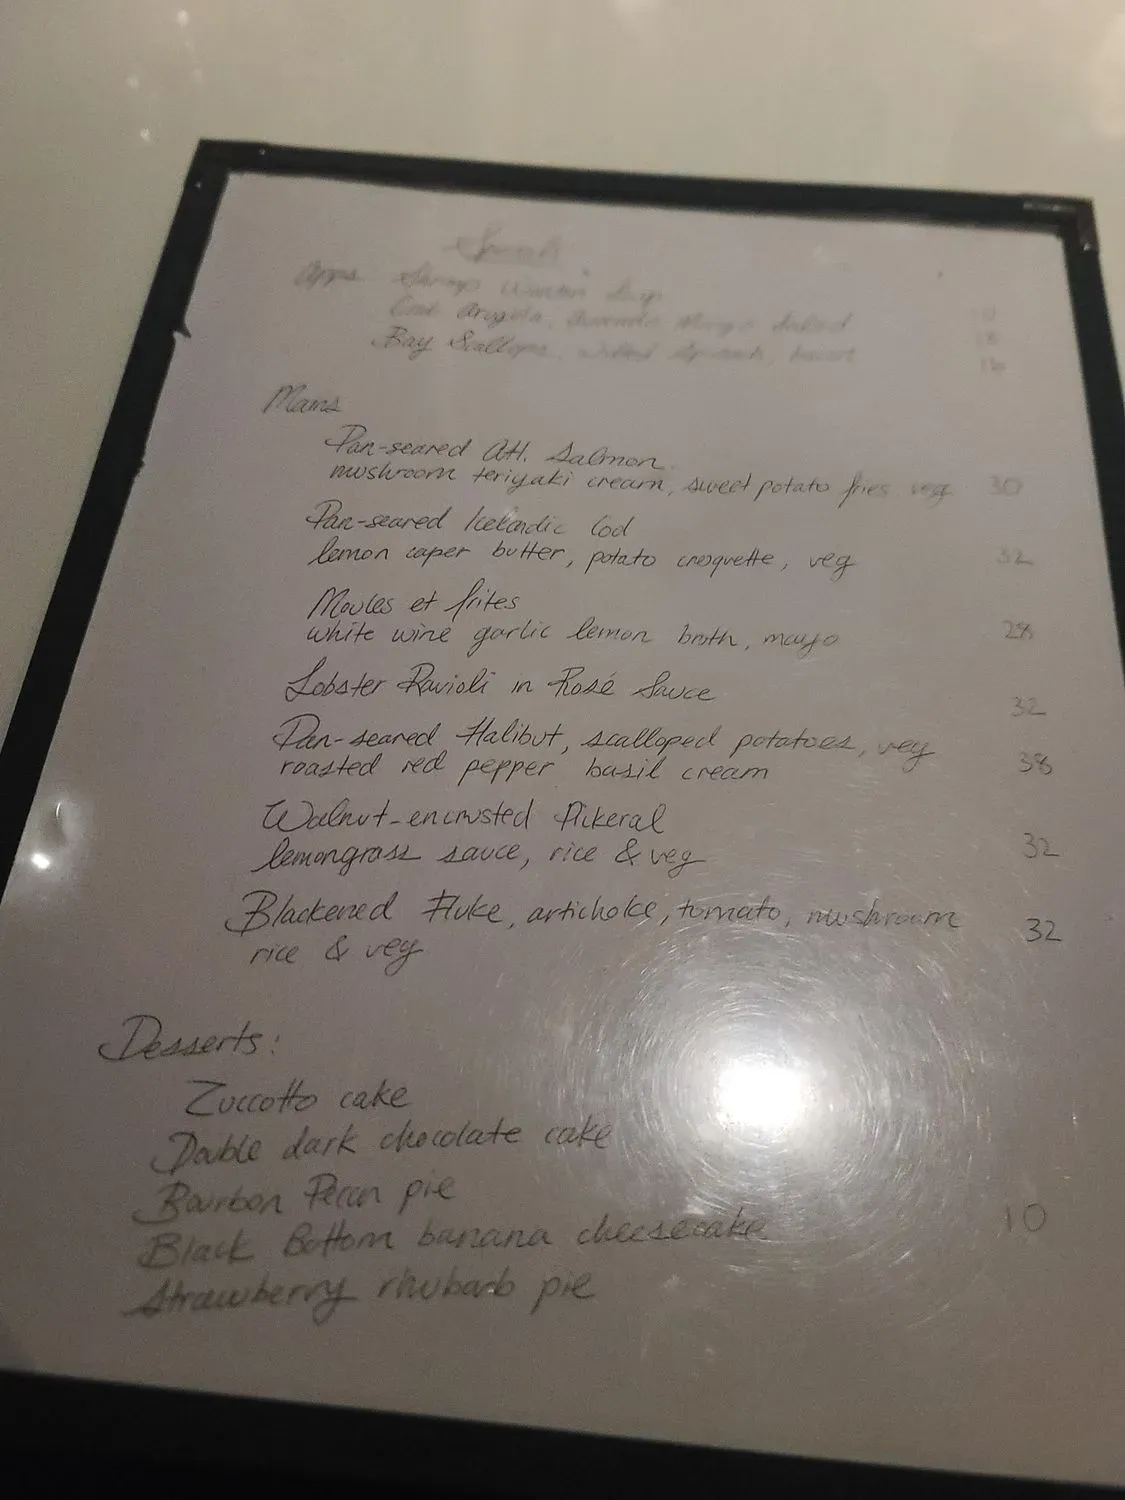 Apps
Soup
Arugula, Mango Salad
Bay Scallops,
Mains
Pan-seared Atl. Salmon
mushroom teriyaki cream, sweet potato fries veg 30
Pan-seared Icelandic Cod
lemon caper butter, potato croquette, veg 32
Moules et frites
white wine garlic lemon broth, mayo 28
Lobster Ravioli in Rosé Sauce 32
Pan-seared Halibut, scalloped potatoes, veg
roasted red pepper basil cream 38
Walnut-encrusted Pickeral
lemongrass sauce, rice & veg 32
Blackened Fluke, artichoke, tomato, mushroom 32
rice & veg
Desserts:
Zuccotto cake
Double dark chocolate cake
Bourbon Pecan pie
Black Bottom banana cheesecake 10
Strawberry rhubarb pie